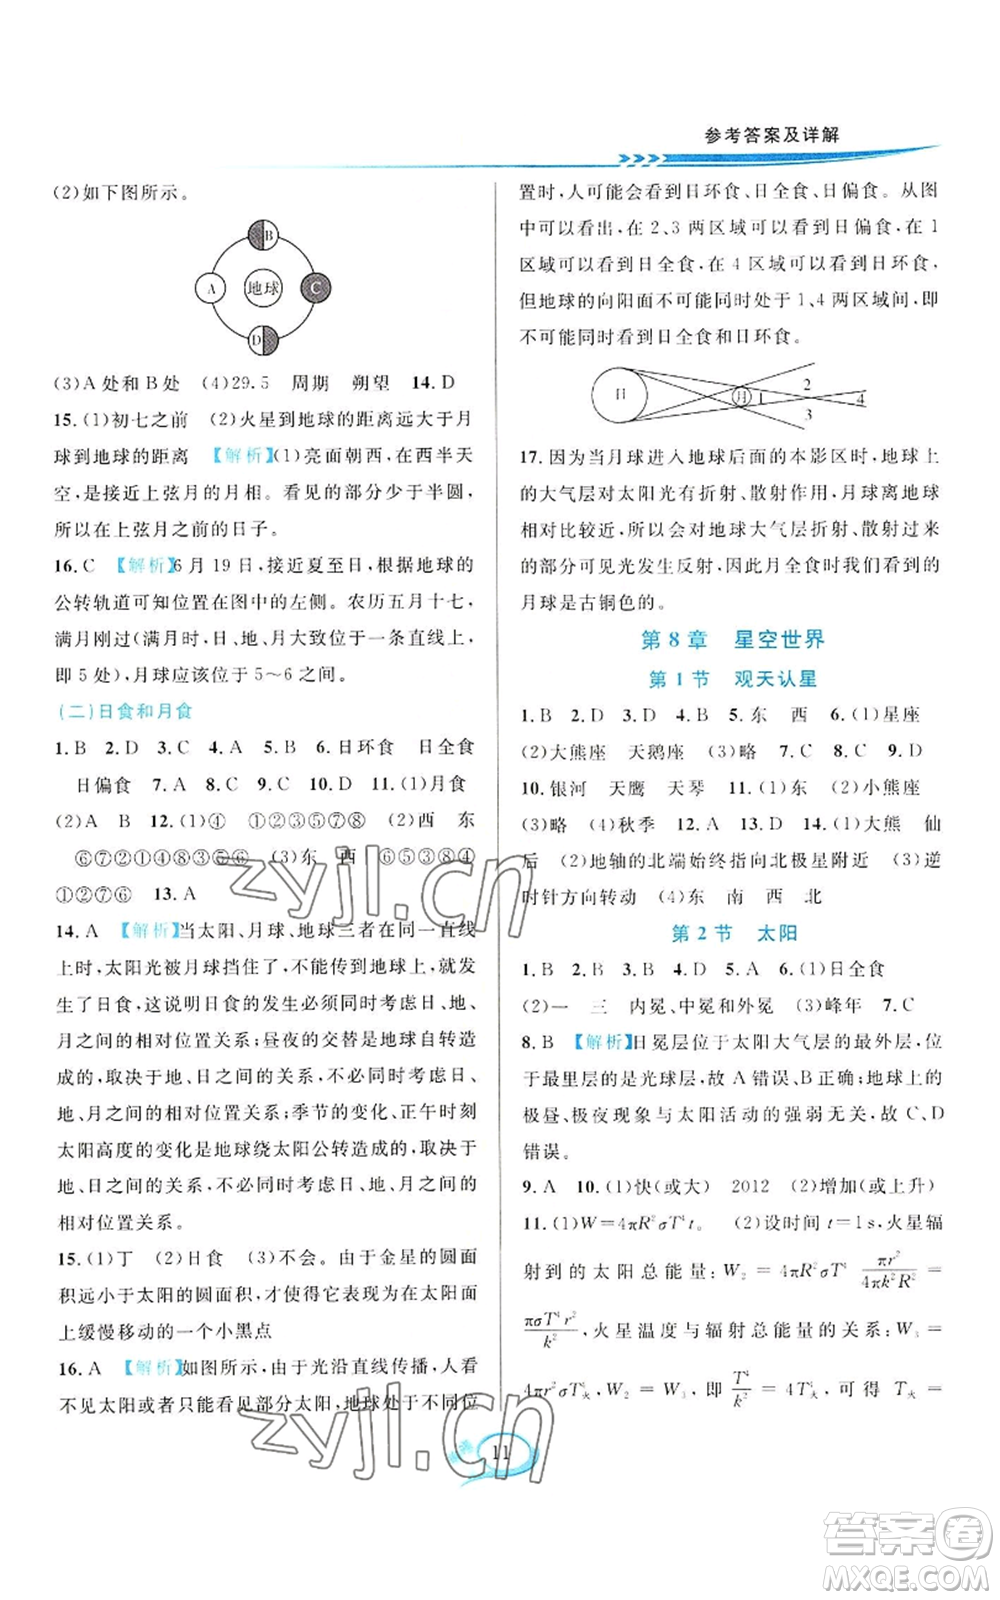 参考答案及详解
(2)如下图所示。
B
A 地球 C
D
(3)A处和B处 (4)29.5 周期 朔望 14. D
15. (1)初七之前 (2)火星到地球的距离远大于月
球到地球的距离 【解析】(1)亮面朝西,在西半天
空,是接近上弦月的月相。看见的部分少于半圆,
所以在上弦月之前的日子。
16. C 【解析】6月19日,接近夏至日,根据地球的
公转轨道可知位置在图中的左侧。农历五月十七,
满月刚过(满月时,日、地、月大致位于一条直线上,
即5处),月球应该位于5～6之间的位置。
(二)日食和月食
1. B 2. D 3. D 4. A 5. B 6. 日环食 日全食
日偏食 7. A 8. C 9. C 10. A 11. (1)月食
(2)A B 12. (1)④ ①②③⑧④ (2)西 东
⑥⑦②①④⑧③⑤⑥ (3)东 西 ⑥⑤③⑧④
①②⑦⑥ 13. A
14. A 【解析】当太阳、月球、地球三者在同一直线
上时,太阳光被月球挡住了,不能传到地球上,就发
生了日食,这说明日食的发生必须同时考虑日、地、
月之间的相对位置关系;昼夜的交替是地球自转造
成的,取决于日、地之间的关系,不必同时考虑日、
地、月之间的相对位置关系;季节的变化、正午时刻
太阳高度的变化是地球绕太阳公转造成的,取决于
日、地之间的关系,不必同时考虑日、地、月之间的相
对位置关系。
15. (1)丁 (2)日食 (3)不会。由于金星的圆面
积远小于太阳的圆面积,使得它表现为在太阳面
上缓慢移动的一个小黑点
16. A 【解析】如图所示,由于光沿直线传播,人看
不见太阳或者只能看见部分太阳,地球处于不同位
置时,人可能会看到日环食、日全食、日偏食。从图
中可以看出,在2、3两区域可以看到日偏食,在1
区域可以看到日全食,在4区域可以看到日环食,
但地球的向阳面不可能同时处于1、4两区域间,即
不可能同时看到日全食和日环食。
日 月 1 2 3 4
17. 因为当月球进入地球后面的本影区时,地球上
的大气层对太阳光有折射、散射作用,月球离地球
相对比较近,所以会对地球大气层折射、散射过来
的部分可见光发生反射,因此月全食时我们看到的
月球是古铜色的。
第8章 星空世界
第1节 观天认星
1. B 2. D 3. D 4. A 5. 东 西 6. (1)星座
(2)大熊座 天鹅座 (3)略 7. C 8. C 9. D
10. 银河 天鹰 天琴 11. (1)略 (2)小熊座
(3)略 (4)秋季 12. A 13. D 14. (1)大熊 仙
后 (2)地轴的北端始终指向北极星附近 (3)逆
时针方向转动 (4)东 南 西 北
第2节 太阳
1. B 2. B 3. C 4. D 5. A 6. (1)日全食
(2)一 三 内冕、中冕和外冕 (3)峰年 7. C
8. B 【解析】日冕层位于太阳大气层的最外层,位
于最里层的是光球层,故A错误、B正确;地球上的
极昼、极夜现象与太阳活动的强弱无关,故C、D
错误。
9. A 10. (1)快(或大) 2012 (2)增加(或上升)
11. (1)W=4πR²σT⁴t。 (2)设时间t=1s,火星辐
射到的太阳总能量:W₂=4πR²σT⁴ πr²/4πk²R² =
πσT⁴r²/k²,火星温度与辐射总能量的关系:W₃=
4πr²σT火⁴,W₂=W₃,即 T⁴/k²=4T火⁴,可得 T火=
11
zyjl.cn
zyjl.cn
答案卷
MXQE.COM